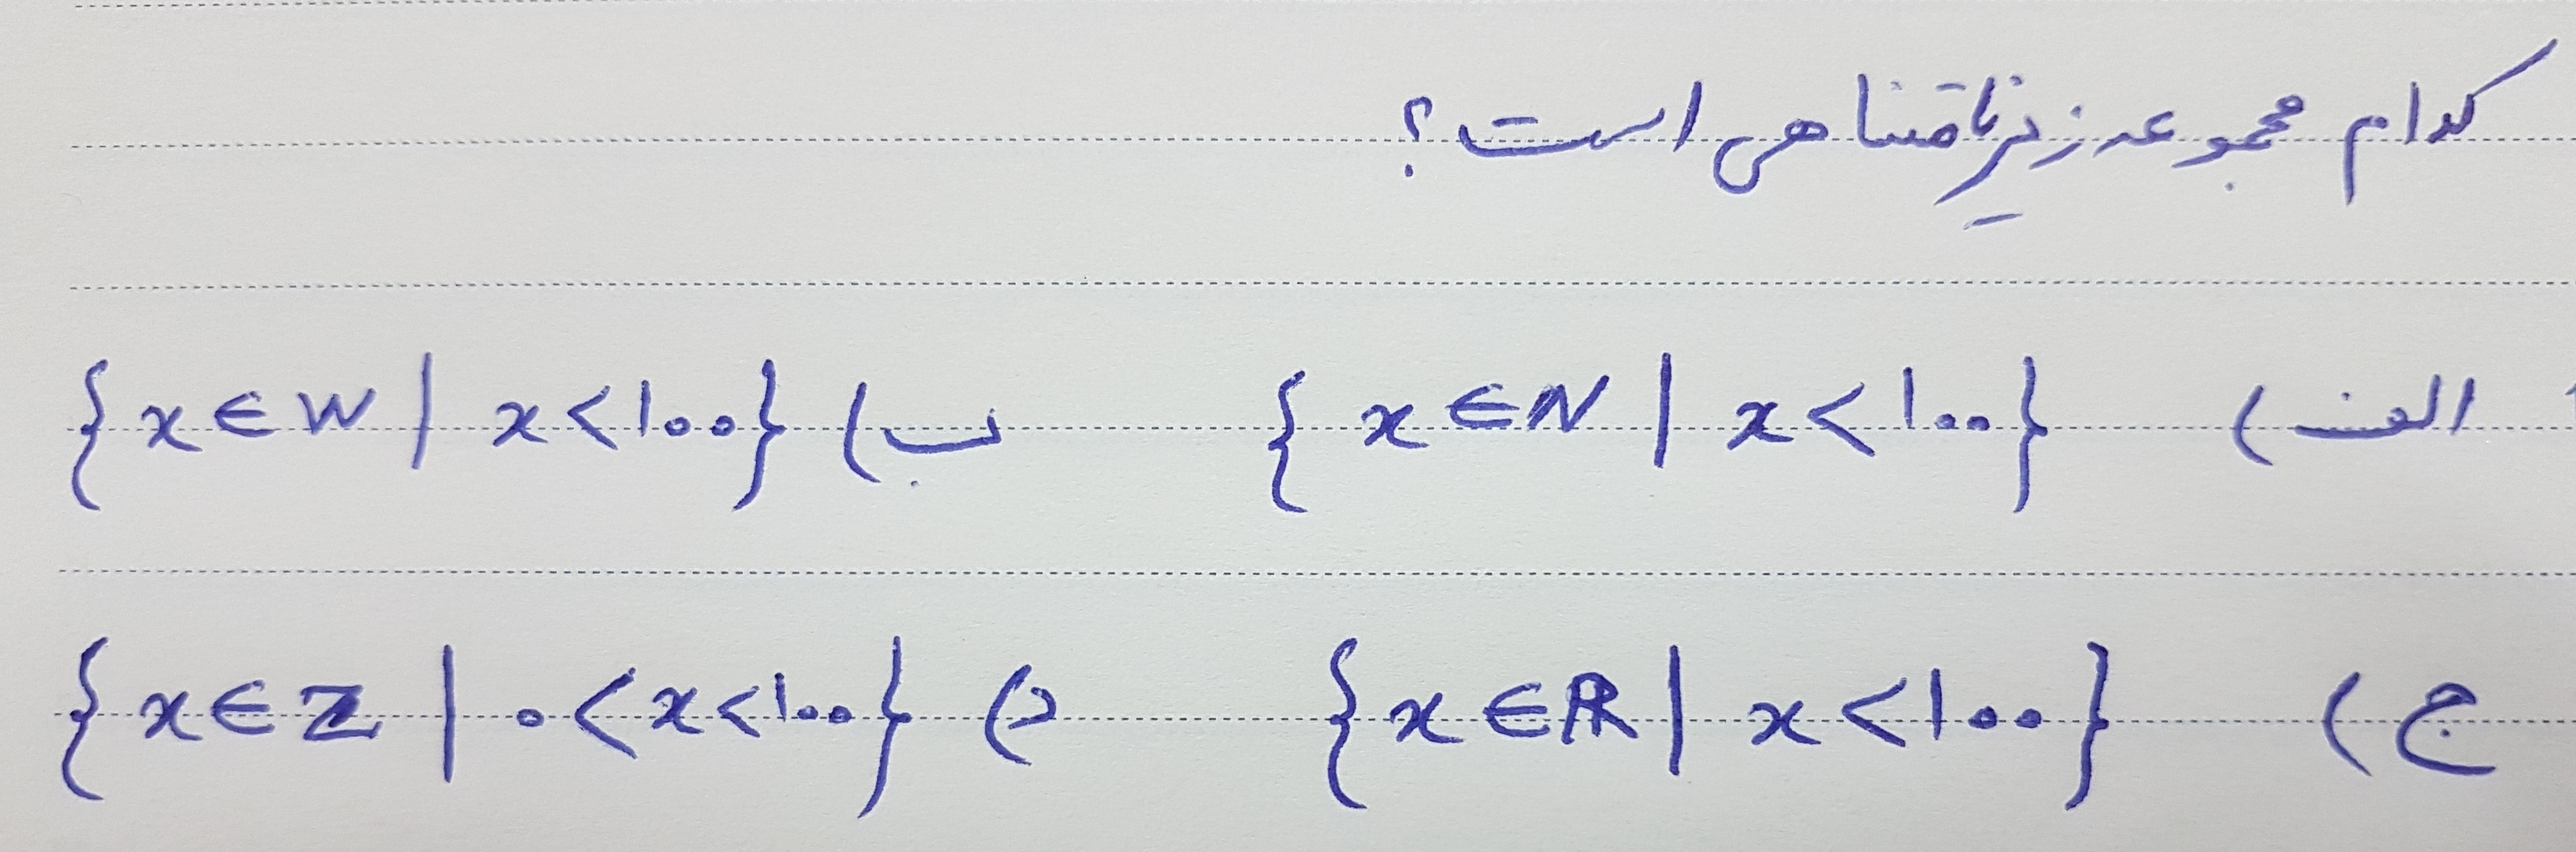 کدام مجموعه زیر نامتناهی است؟
الف) {x ∈ N | x < ۱۰۰} ب) {x ∈ W | x < ۱۰۰}
ج) {x ∈ ℝ | x < ۱۰۰} د) {x ∈ Z | ۰ < x < ۱۰۰}